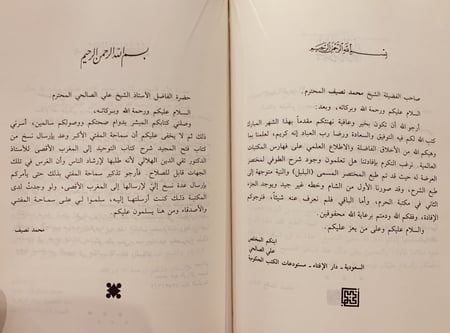 بسم الله الرحمن الرحيم
صاحب الفضيلة الشيخ محمد نصيف المحترم.
السلام عليكم ورحمة الله وبركاته، وبعد:
أرجو الله أن تكون بخير وعافية نهنئكم مقدماً بهذا الشهر المبارك
كتب الله لكم فيه التوفيق والسعادة ورضا رب العباد إنه كريم، لعلمنا بما
وهبكم الله من الأخلاق الفاضلة والاطلاع العلمي على فهارس المكتبات
العالمية. نرغب التكرم بإفادتنا هل تعلمون وجود شرح الطوفي لمختصر
الروضة له حيث قد تم طبع المختصر المسمى (البلبل) والنية متوجهة إلى
طبع الشرح، وقد صورنا الأول من الشام وخطه غير جيد ويوجد الجزء
الثاني في مكتبة الحرم، وأما الباقي فلم نعرف عنه شيئاً، فنرجوكم
الإفادة، وفقكم الله ودمتم برعاية الله محفوفين.
والسلام عليكم وعلى من يعز عليكم.
ابنكم المخلص
علي الصالحي
السعودية ـ دار الإفتاء ـ مستودعات الكتب الحكومية
بسم الله الرحمن الرحيم
حضرة الفاضل الأستاذ الشيخ علي الصالحي المحترم.
السلام عليكم ورحمة الله وبركاته.
وصلني كتابكم المبشر بدوام صحتكم ووصولكم سالمين، أسرني
ذلك ثم لا يخفى عليكم أن سماحة المفتي الأكبر وعد بإرسال نسخ من
كتاب فتح المجيد شرح كتاب التوحيد إلى المغرب الأقصى للأستاذ
الدكتور تقي الدين الهلالي لأنه طلبها لإرشاد الناس وأن الغرس في تلك
الجهات قابل للصلاح. فأرجو تذكير سماحة المفتي بذلك حتى يأمركم
بإرسال عدة نسخ إليّ لإرسالها إلى المغرب الأقصى، ولو وجدتُ لدى
المكتبة ذلك كنت أرسلتها إليه، سلموا لي على سماحة المفتي
والأصدقاء ومن هنا يسلمون عليكم.
محمد نصيف